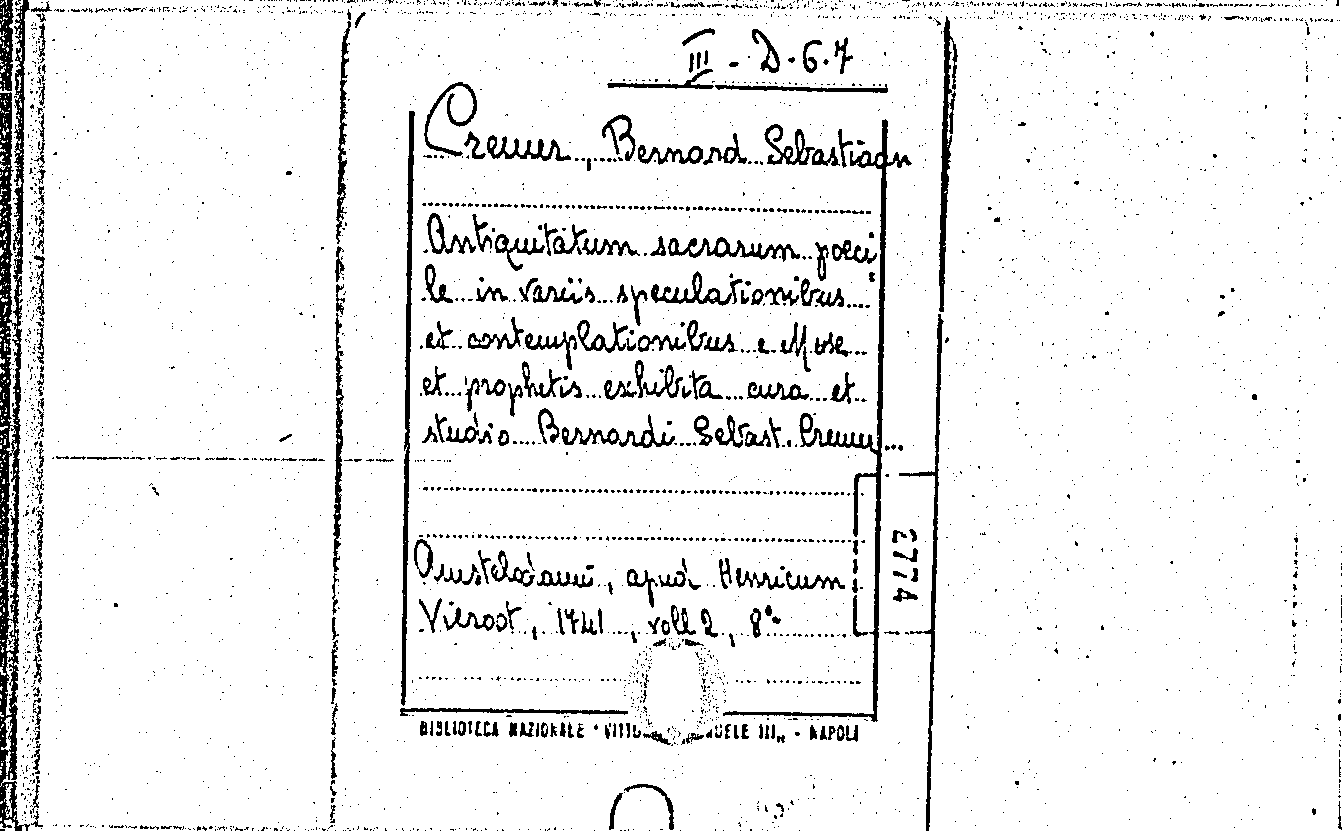 III - D.6.7
Cremer, Bernard Sebastiaan
Antiquitatum sacrarum poeci
le in variis speculationibus
et contemplationibus e Mose
et prophetis exhibita cura et
studio Bernardi Sebast. Cremer
Amstelodami, apud Henricum
Vieroot, 1741, voll 2, 8°
2774
BIBLIOTECA NAZIONALE "VITTO UELE III" - NAPOLI